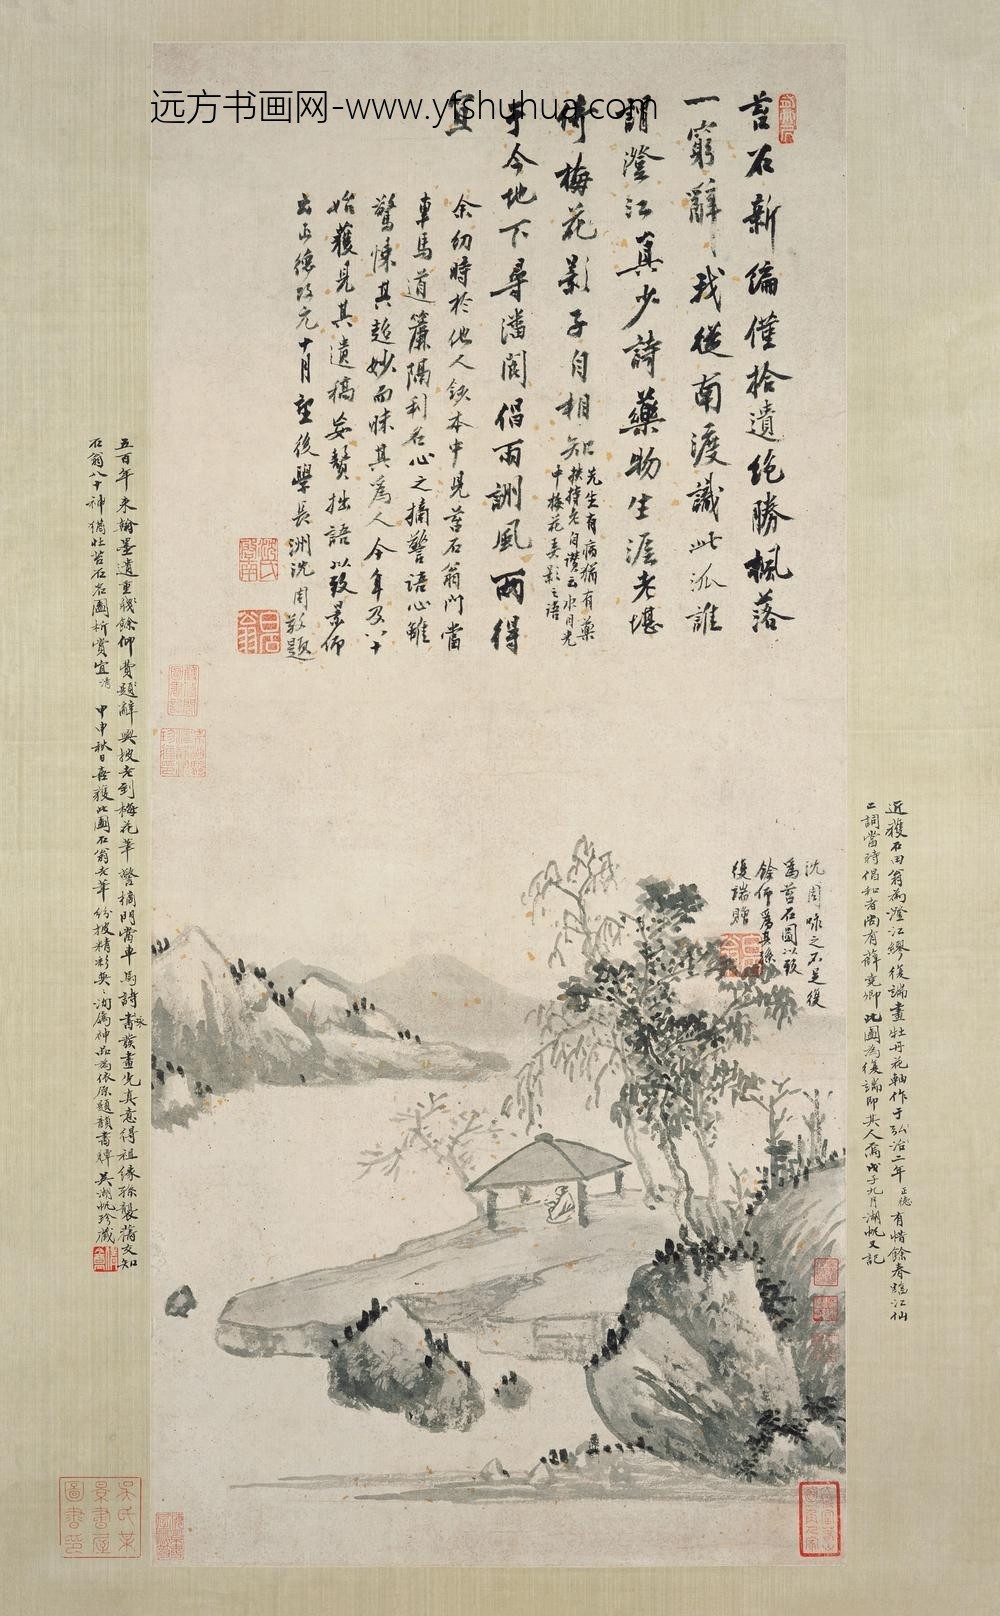 远方书画网-www.yfshuhua.com
苔石新編僅拾遺絕勝楓落
一窮辭我從南渡識此派誰
謂澄江真少詩藥物生涯老堪
倚梅花影子自相知
先生有病猶有藥
扶持老自讚云水月光
中梅花是影之語
于今地下尋潘閬倡雨訓風兩得
宜
余幼時於他人鈔本中見苔石翁門當
車馬道簾隔利名心之摘警語心雖
驚悚其超妙而昧其為人今年及八十
始獲見其遺稿妄贅拙語以致景仰
云正德改元十月望後學長洲沈周敬題
沈周咏之不足復
為苔石圖以致
餘仰為其孫
復端贈
近獲石田翁為澄江繆復端畫牡丹花軸作于弘治二年正德有惜餘春臨江仙
二詞當時倡和者尚有薛堯卿此圖為復端即其人爾戊子九月湖帆又記
五百年來翰墨遺重牋餘仰費題辭興披老到梅花筆警摘門當車馬詩書裝畫光真意得祖緣孫襲舊交知
石翁八十神猶壯苔石名圖析賞宜
甲申秋日喜獲此圖石翁老筆紛披精彩奕奕洵為神品為依原題韻書裱吳湖帆珍藏
吳氏某
景書屋
圖書印